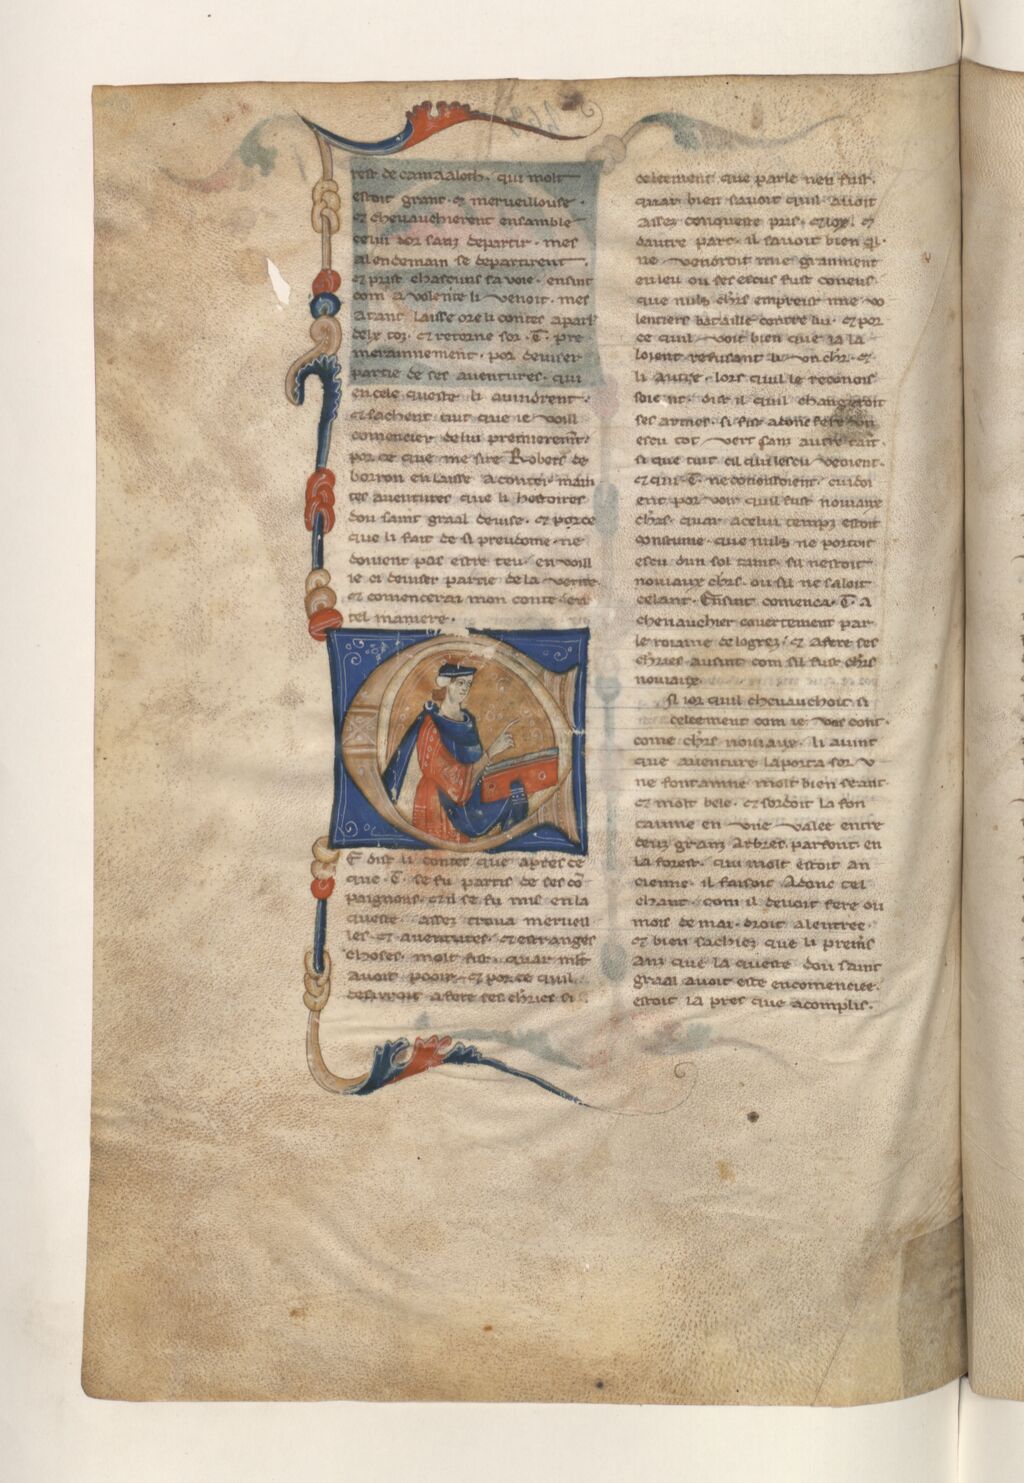 rest de camaaloth. qui molt
estoit grant. ⁊ merueillouse.
⁊ cheuauchierent ensamble
celui ior sanz departir. mes
al endemain se departirent.
⁊ prist chascuns sa uoie. ensint
com auolente li uenoit. mes
atant laisse ore li contes aparl
delx toz. ⁊ retorne sor .T. pre
meraunement. por deuiser
partie de ses auentures. qui
en cele queste li auindrent.
⁊ sachent tuit que ie uoill
comencier de lui premierem̃t
por ce que me sire Robers de
borron en laisse aconter main
tes auentures que li hestoires
dou saint graal deuise. ⁊ porce
que li fait de si preudome. ne
doiuent pas estre teu. en uoill
ie ci deuiser partie de la uerite.
⁊ comencerai mon conte en
tel maniere.
E dist li contes que apres ce
que .T. se fu partis de ses cõ
paignons. ⁊ il se fu mis en la
queste. assez troua merueil
les. ⁊ auentures. ⁊ estranges
choses. molt fist. quar mlt
auoit pooir. ⁊ por ce quil
desirroit afere ses ch̃ries si
celeement que parle nen fust.
quar bien sauoit quil auoit
assez conqueste pris. ⁊ lox. ⁊
dautre part. il sauoit bien q̃l
ne uendroit mie granment
en leu ou ses escus fust coneus.
que nuls ch̃rs empreist mie uo
lentiers bataille contre lui. ⁊ por
ce quil uoit bien que ia la
loient refusant li un ch̃r. ⁊
li autre. lors quil le reconois
soient. dist il quil changeroit
ses armes. si fist adonc fere un
escu tot uert sanz autre taint.
si que tuit cil qui lescu ueoient.
⁊ qui .T. ne conoissoient. cuidoi
ent por uoir quil fust nouiaux
ch̃rs. quar a celui temps estoit
constume. que nuls ne portoit
escu dun sol taint. sil nestoit
nouiaux ch̃rs. ou sil ne saloit
celant. Ensint comenca .T. a
cheuauchier couertement par
le roiaume de logres. ⁊ afere ses
ch̃ries ausint com sil fust ch̃rs
nouiaux.
si ior quil cheuauchoit si
celeement com ie uos cont
come ch̃rs nouiaux. li auint
que auenture laporta sor u
ne fontainne molt bien seant.
⁊ molt bele. ⁊ sordoit la fon
taine en une ualee entre
deuz granz arbres. parfont en
la forest. qui molt estoit an
cienne. il faisoit adonc tel
chaut. com il deuoit fere ou
mois de mai. droit alentree.
⁊ bien sachiez que li premĩs
anz que la queste dou saint
graal auoit este encomenciee.
estoit ia pres que acomplis.